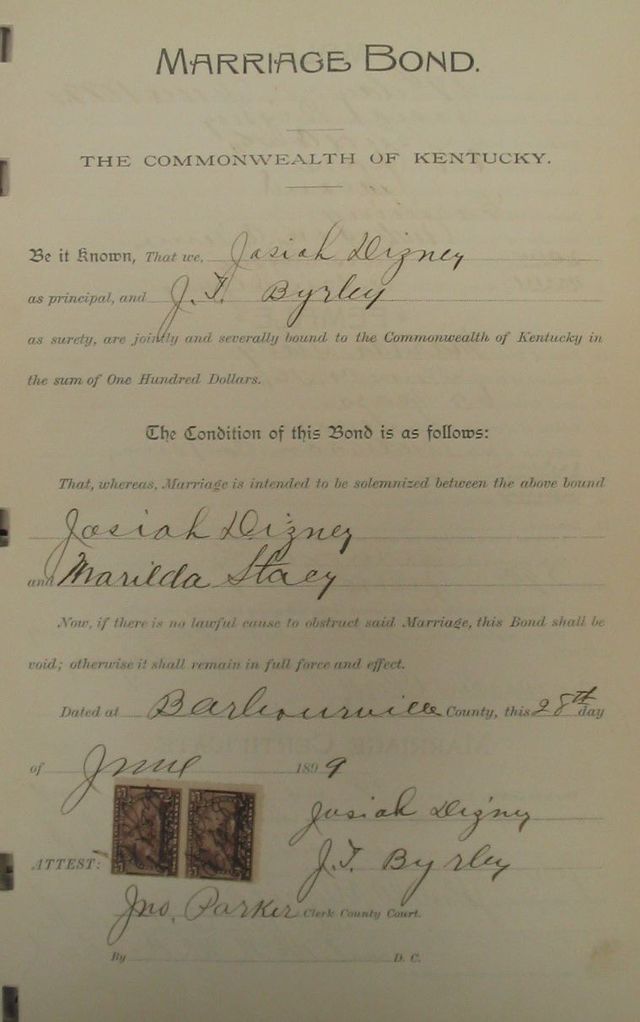 MARRIAGE BOND.
THE COMMONWEALTH OF KENTUCKY.
Be it Known, That we, Josiah Dizney
as principal, and J. T. Byrley
as surety, are jointly and severally bound to the Commonwealth of Kentucky in
the sum of One Hundred Dollars.
The Condition of this Bond is as follows:
That, whereas, Marriage is intended to be solemnized between the above bound
Josiah Dizney
and Marilda Stacy
Now, if there is no lawful cause to obstruct said Marriage, this Bond shall be
void; otherwise it shall remain in full force and effect.
Dated at Barbourville County, this 28th day
of June 1899
Josiah Dizney
ATTEST: J. T. Byrley
Jno. Parker Clerk County Court.
By D. C.